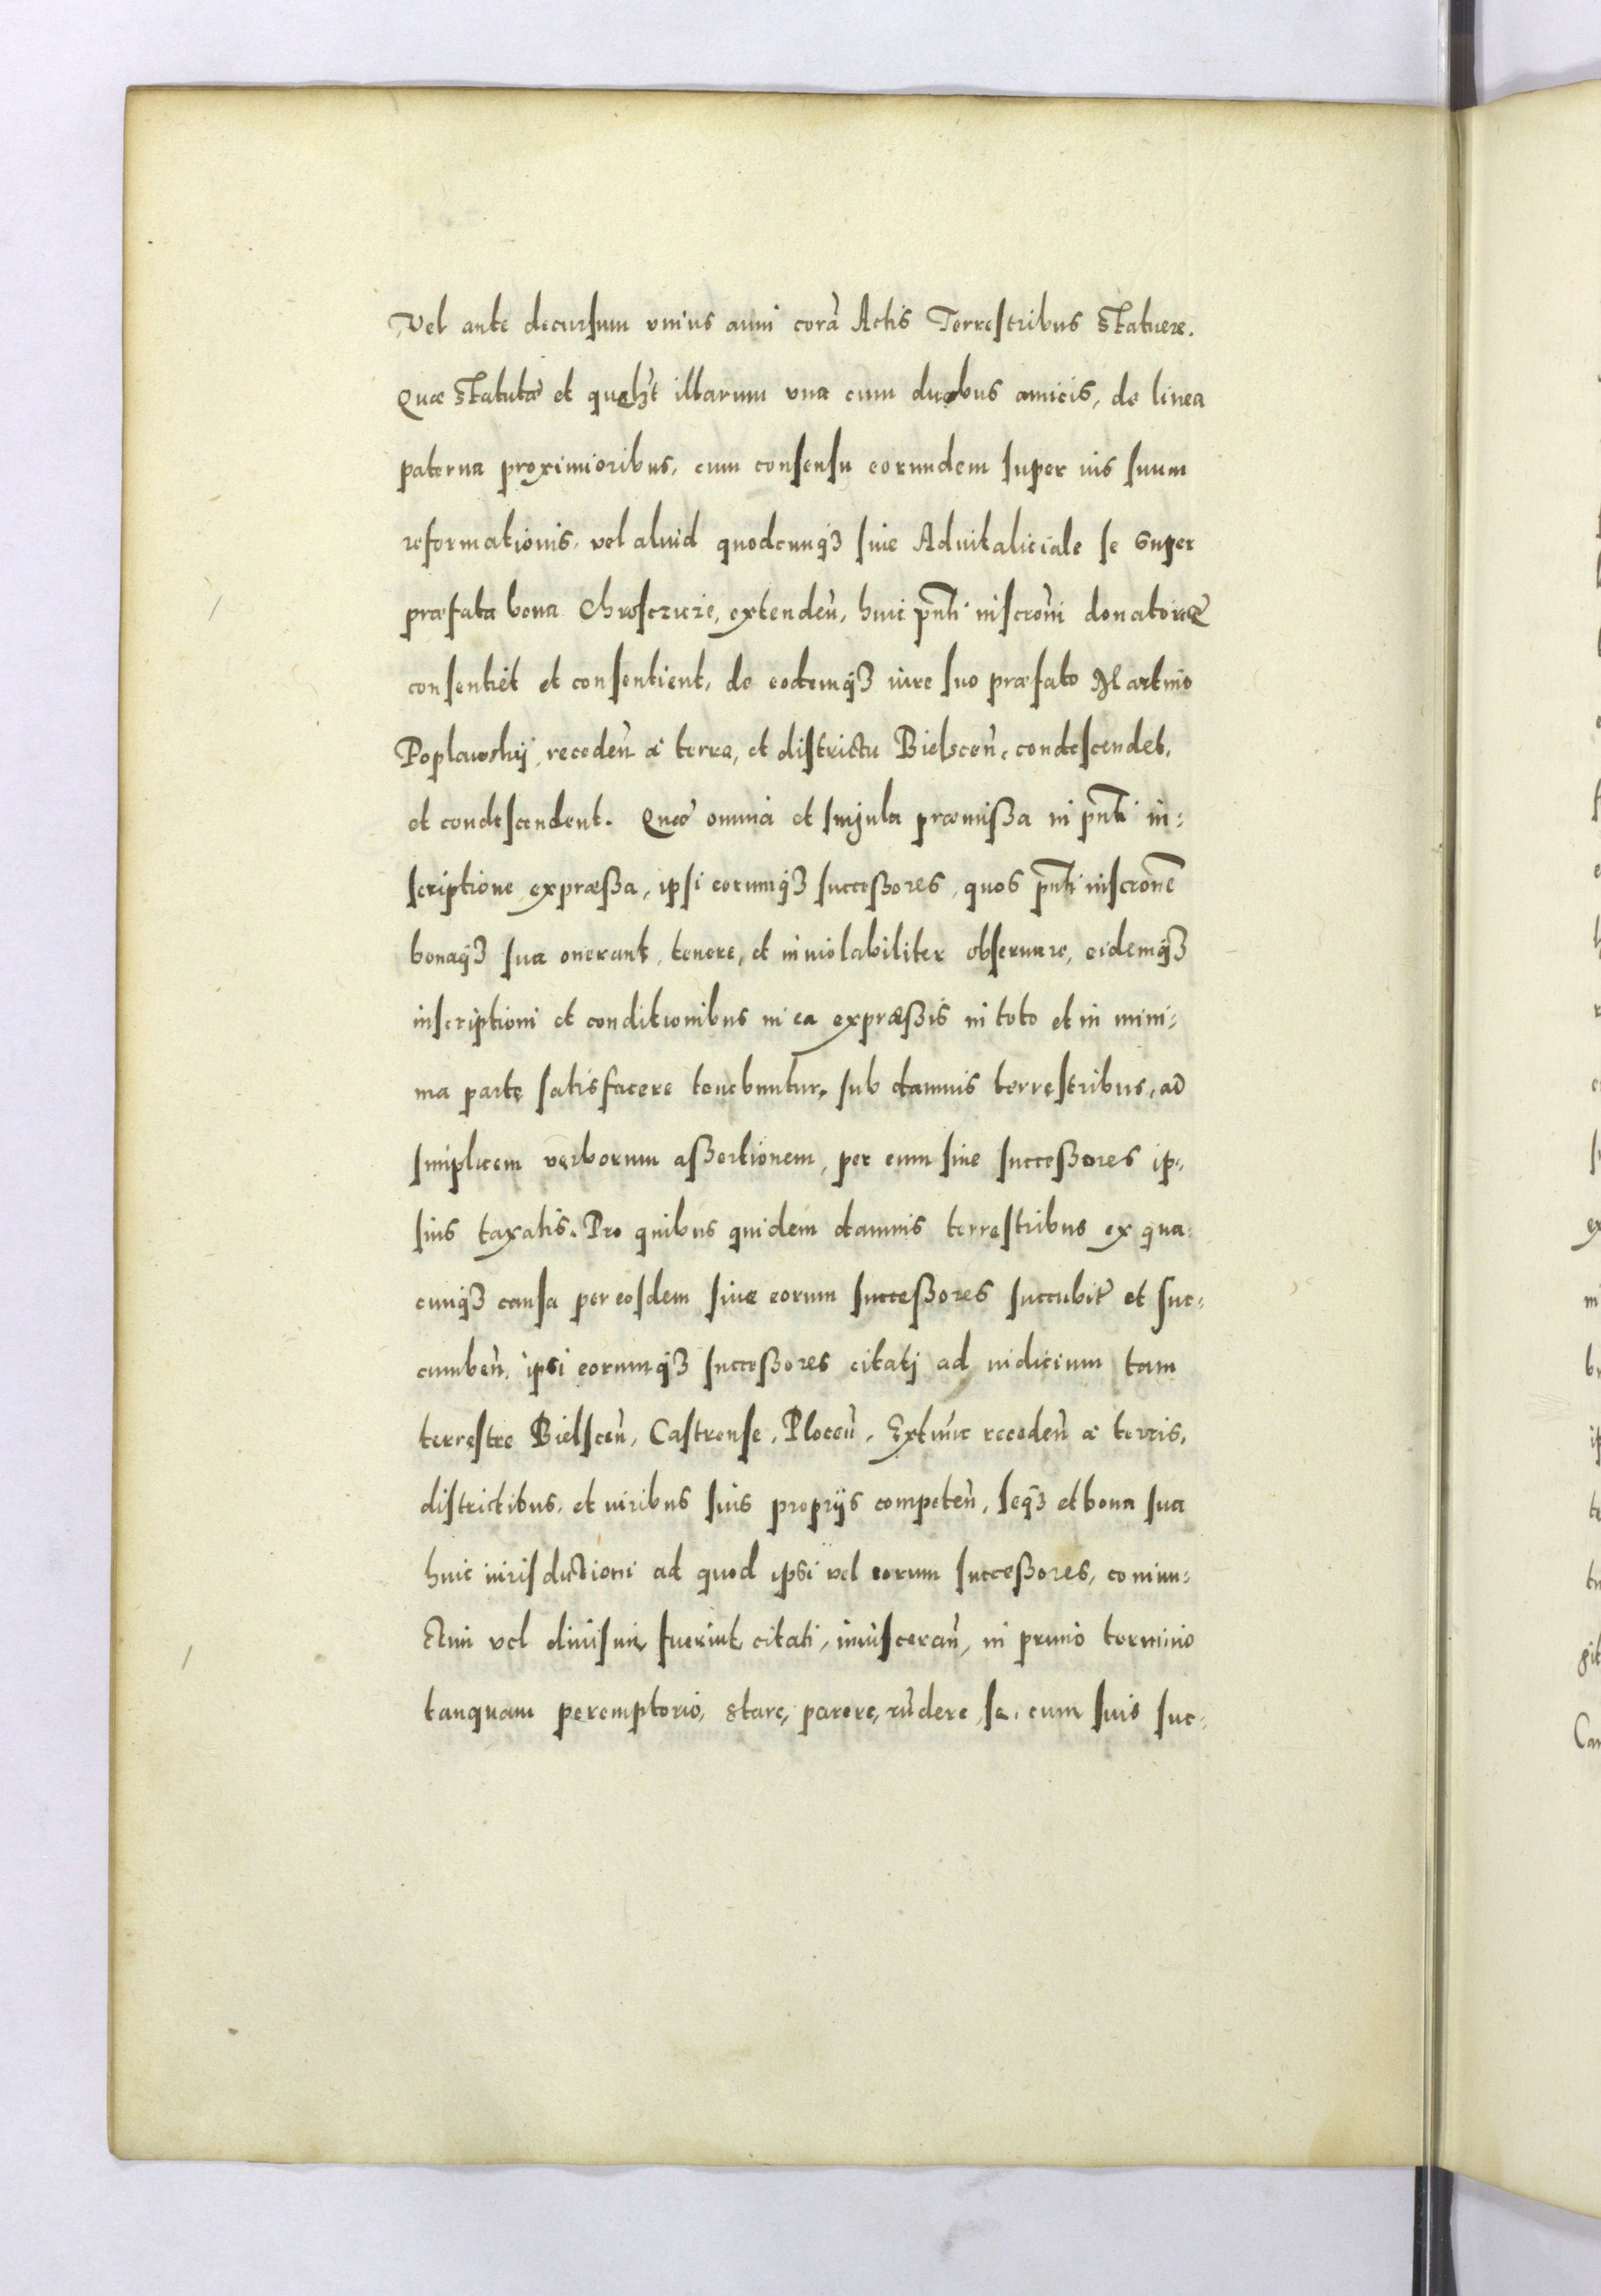 Vel ante decursum vnius anni corã Actis Terrestribus statuere.
Quæ statutæ et quælt illarum vna cum duobus amicis, de linea
paterna proximioribus, cum consensu eorundem super ius suum
reformationis, vel aliud quodcunq3 siue Aduitaliciale se super
præfata bona Chrosczicie, extendeñ, huic pñti inscrõni donatoriæ
consentiet et consentient, de eodemq3 iure suo præfato Martino
Poplawskij, recedeñ à terra, et districtu Bielsceñ, condescendet,
et condescendent. Quæ omnia et singula præmißa in pñti in-
scriptione expræßa, ipsi eorumq3 succeßores, quos pñti inscrõne
bonaq3 sua onerant, tenere, et inuiolabiliter obseruare, eidemq3
inscriptioni et conditionibus in ea expræßis in toto et in mini-
ma parte satisfacere tenebuntur, sub damnis terrestribus, ad
simplicem verborum aßertionem, per eum siue succeßores ip-
sius taxatis. Pro quibus quidem damnis terrestribus ex qua-
cunq3 causa per eosdem siue eorum succeßores succubit et suc-
cumbeñ, ipsi eorumq3 succeßores citatj ad iudicium tam
terrestre Bielsceñ, Castrense, Ploceñ, Extunc recedeñ à terris,
districtibus, et iuribus suis proprijs competeñ, seq3 et bona sua
huic iurisdictioni ad quod ipsi vel eorum succeßores, coniun-
ctim vel diuisim fuerint citati, inuiscerañ, in primo termino
tanquam peremptorio, stare, parere, rñdere, se, cum suis suc-